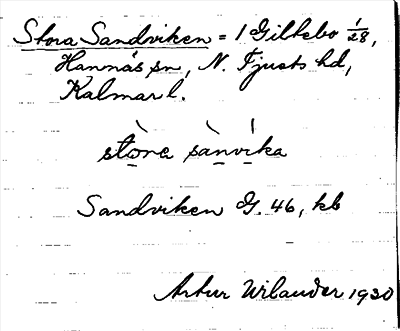 Stora Sandviken = 1 Giltebo 1/28,
Hannäs sn, N. Tjusts hd,
Kalmar l.
stòra sànvíka
Sandviken G. 46, kb
Artur Wilander 1920